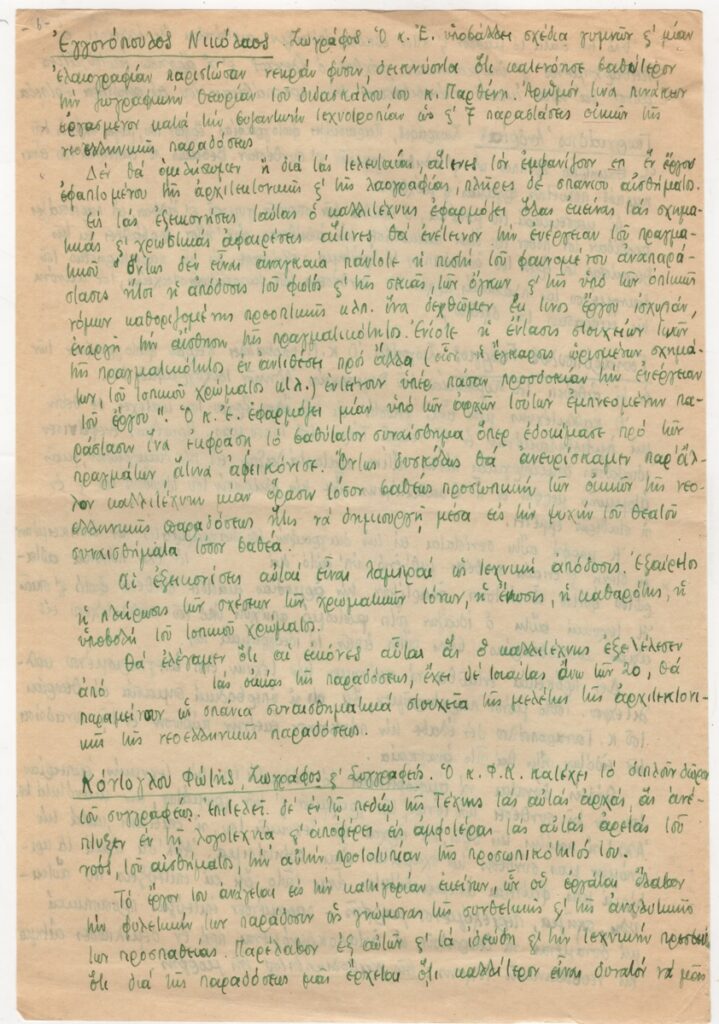 -6-
Ἐγγονόπουλος Νικόλαος. Ζωγράφος. Ὁ κ. Ἐ. ὑποβάλλει σχέδια γυμνῶν ϛ' μίαν
ἐλαιογραφίαν παριστῶσαν νεκρὰν φύσιν, δεικνύοντα ὅτι κατενόησε βαθύτερον
τὴν ζωγραφικὴν θεωρίαν τοῦ διδασκάλου του κ. Παρθένη. Ἀριθμὸν τινα πινάκων
ἐργασμένον κατὰ τὴν βυζαντινὴν τεχνοτροπίαν ὡς ϛ' 7 παραστάσεις οἰκιῶν τῆς
νεοελληνικῆς παραδόσεως.
Δὲν θὰ ὁμιλήσωμεν ἢ διὰ τὰς τελευταίας, αἵτινες τὸν ἐμφανίζουν ἐπ' ἓν ἔργον
ἐφαπτομένου τῆς ἀρχιτεκτονικῆς ϛ' τῆς λαογραφίας, πλῆρες δὲ σπανίου αἰσθήματος.
Εἰς τὰς ἐξεικονίσεις ταύτας ὁ καλλιτέχνης ἐφαρμόζει ὅλας ἐκείνας τὰς σχημα-
τικὰς ϛ' χρωστικὰς ἀφαιρέσεις αἵτινες θὰ ἐνέτεινον τὴν ἐνέργειαν τοῦ πραγμα-
τικοῦ "Ὄντως δὲν εἶναι ἀναγκαία πάντοτε ἡ πιστὴ τοῦ φαινομένου ἀναπαρά-
στασις ἤτοι ἡ ἀπόδοσις τοῦ φωτὸς ϛ' τῆς σκιᾶς, τῶν ὄγκων, ϛ' τῆς ὑπὸ τῶν ὀπτικῶν
νόμων καθοριζομένης προοπτικῆς κλπ. ἵνα δεχθῶμεν ἔκ τινος ἔργου ἰσχυράν,
ἐναργῆ τὴν αἴσθησιν τῆς πραγματικότητος. Ἐνίοτε ἡ ἔντασις στοιχείων τινῶν
τῆς πραγματικότητος, ἐν ἀντιθέσει πρὸς ἄλλα (οἷον ἡ ὡρισμένων σχημά-
των, τοῦ τοπικοῦ χρώματος κτλ.) ἐντείνουν ὑπὲρ πᾶσαν προσδοκίαν τὴν ἐνέργειαν
τοῦ ἔργου". Ὁ κ. Ἐ. ἐφαρμόζει μίαν ὑπὸ τῶν ἀρχῶν τούτων ἐμπνεομένην πα-
ράστασιν ἵνα ἐκφράσῃ τὸ βαθύτατον συναίσθημα ὅπερ ἐδοκίμασε πρὸ τῶν
πραγμάτων, ἅτινα ἀφεικόνισε. Ὄντως δυσκόλως θὰ ἀνευρίσκαμεν παρ' ἄλ-
λον καλλιτέχνην μίαν ὅρασιν τόσον βαθέως προσωπικὴν τῶν οἰκιῶν τῆς νεο-
ελληνικῆς παραδόσεως ἥτις νὰ δημιουργῇ μέσα εἰς τὴν ψυχὴν τοῦ θεατοῦ
συναισθήματα τόσον βαθέα.
Αἱ ἐξεικονίσεις αὗται εἶναι λαμπραὶ ὡς τεχνικὴ ἀπόδοσις. Ἐξαίρετος
ἡ πλήρωσις τῶν σχέσεων τῶν χρωματικῶν τόνων, ἡ ἕνωσις, ἡ καθαρότης, ἡ
ὑποβολὴ τοῦ τοπικοῦ χρώματος.
Θὰ ἐλέγαμεν ὅτι αἱ εἰκόνες αὗται ἃς ὁ καλλιτέχνης ἐξετέλεσεν
ἀπὸ τὰς οἰκίας τῆς παραδόσεως, ἔχει δὲ τοιαύτας ἄνω τῶν 20, θὰ
παραμείνουν ὡς σπάνια συναισθηματικὰ στοιχεῖα τῆς μελέτης τῆς ἀρχιτεκτονι-
κῆς τῆς νεοελληνικῆς παραδόσεως.
Κόντογλου Φώτης, Ζωγράφος ϛ' Συγγραφεύς. Ὁ κ. Φ.Κ. κατέχει τὸ διπλοῦν δῶρον
τοῦ συγγραφέως. Ἐπιτελεῖ δὲ ἐν τῷ πεδίῳ τῆς Τέχνης τὰς αὐτὰς ἀρχάς, ἃς ἀνέ-
πτυξεν ἐν τῇ λογοτεχνίᾳ ϛ' ἀποφέρει εἰς ἀμφοτέρας τὰς αὐτὰς ἀρετὰς τοῦ
νοῦ, τοῦ αἰσθήματος, τὴν αὐτὴν πρωτοτυπίαν τῆς προσωπικότητός του.
Τὸ ἔργον του ἀνάγεται εἰς τὴν κατηγορίαν ἐκείνων, ὧν οἱ ἐργάται ἔλαβον
τὴν φυλετικήν των παράδοσιν ὡς γνώμονα τῆς συνθετικῆς ϛ' τῆς ἀναλυτικῆς
των προσπαθείας. Παρέλαβον ἐξ αὐτῶν ϛ' τὰ ἰδεώδη ϛ' τὴν τεχνικὴν
ὅτι διὰ τῆς παραδόσεως μᾶς ἔρχεται ὅ,τι καλλίτερον εἶναι δυνατὸν νὰ μᾶς